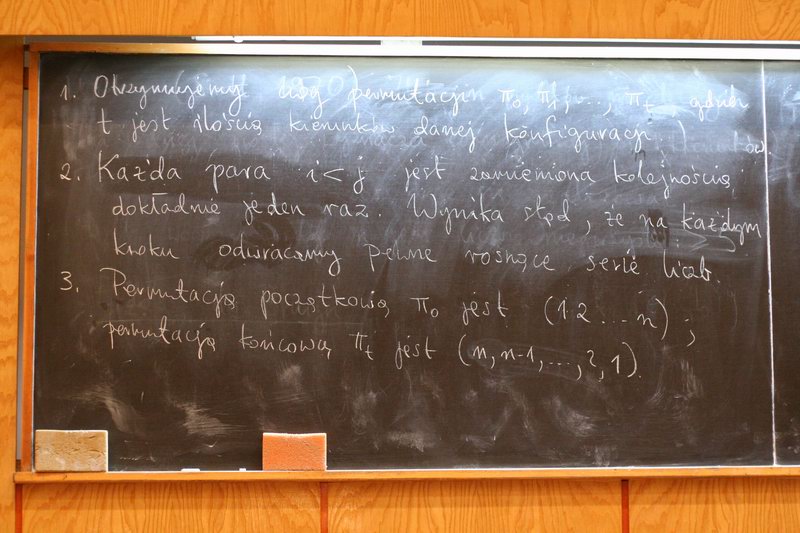 1. Otrzymujemy ciąg permutacji π₀, π₁, ..., πₜ gdzie
t jest ilością kierunków danej konfiguracji.
2. Każda para i < j jest zamieniona kolejnością
dokładnie jeden raz. Wynika stąd, że na każdym
kroku odwracamy pewne rosnące serie liczb.
3. Permutacją początkową π₀ jest (1 2 ... n) ;
permutacją końcową πₜ jest (n, n-1, ..., 2, 1).